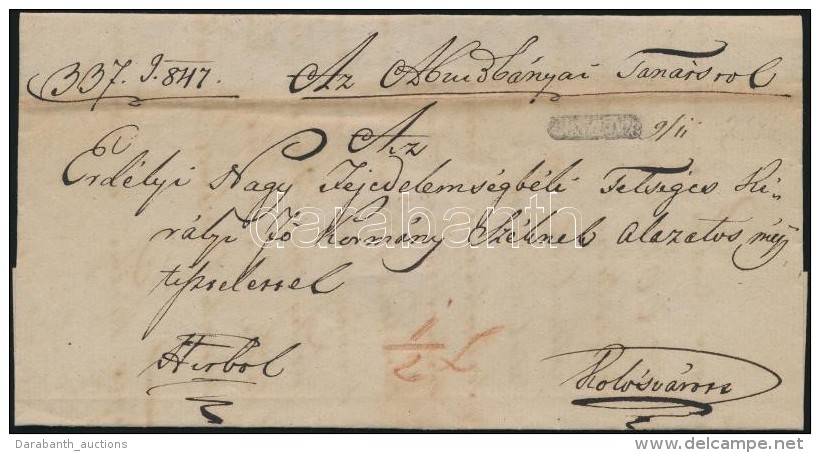 337. J. 847. Az Abrudbányai Tanácstol
9/11
Az
Erdélyi Nagy Fejedelemségbéli Felséges Ki-
rályi Fő Kormány Széknek alazatos
tisztelessel
Hivbol Kolósváron
1/2 L
darabanth
Darabanth_auctions delcampe.net